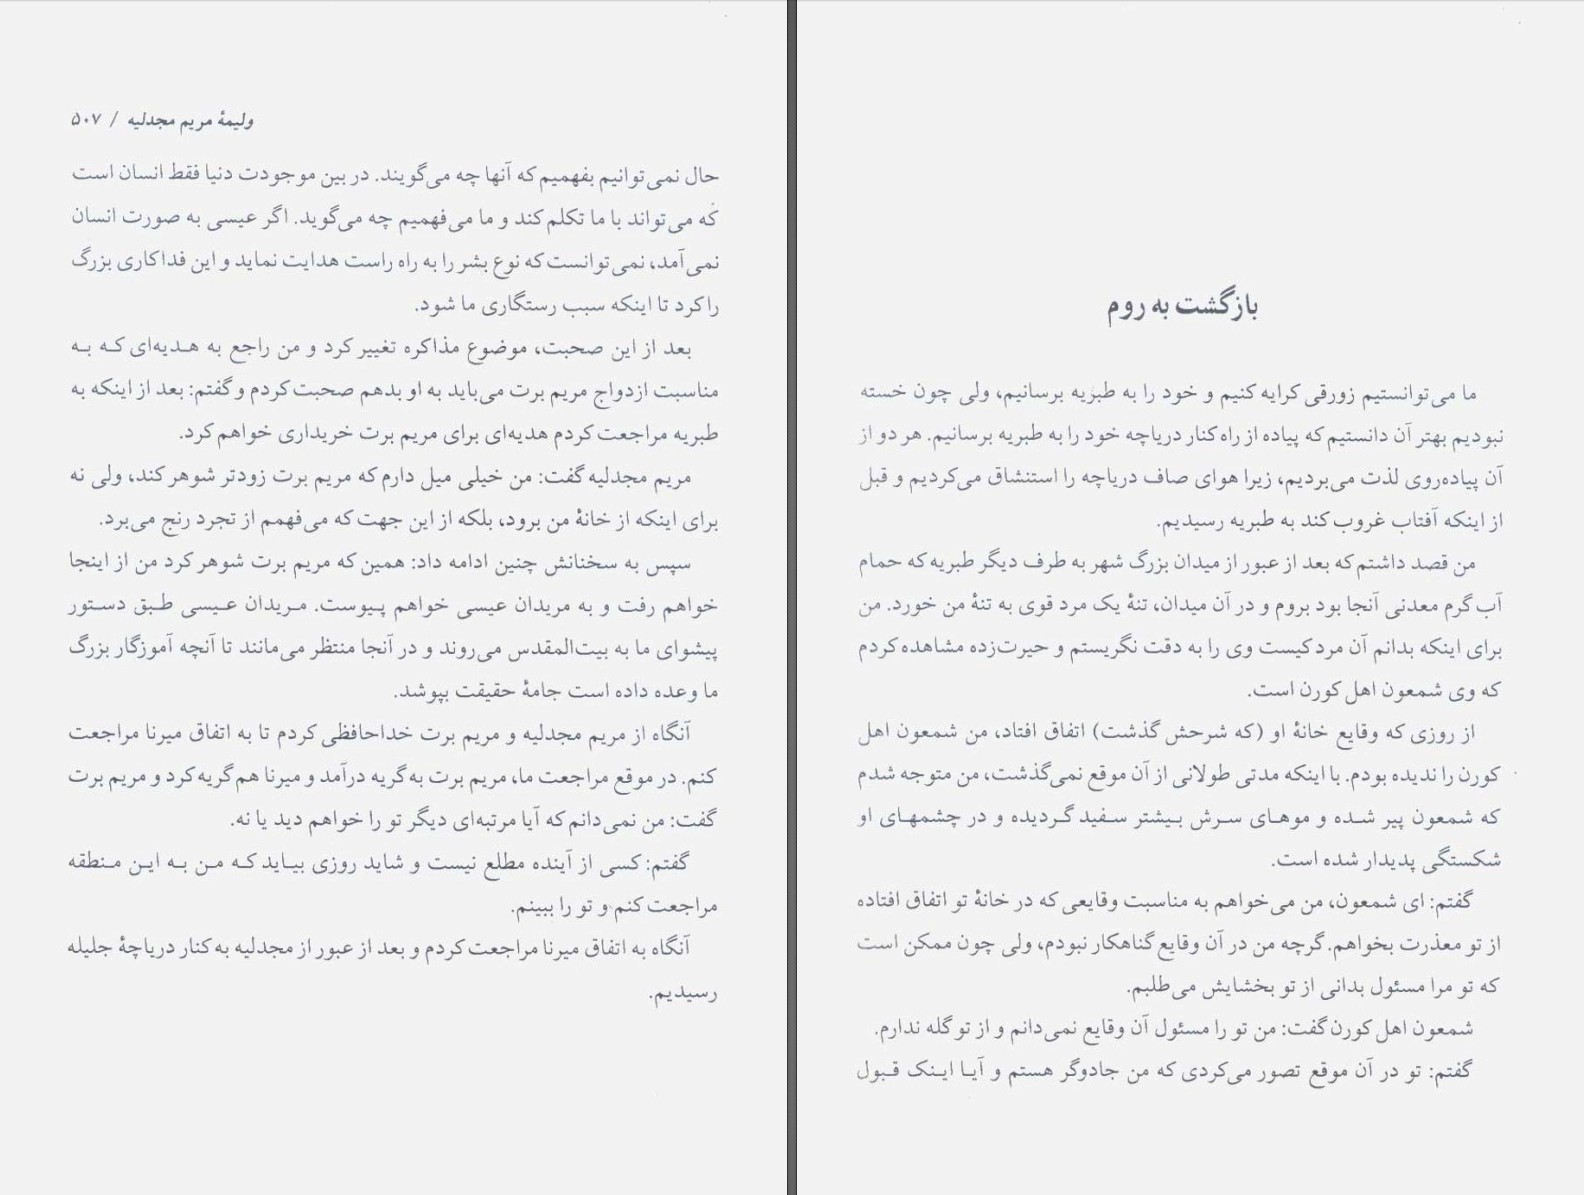 ولیمهٔ مریم مجدلیه / ۵۰۷
حال نمی‌توانیم بفهمیم که آنها چه می‌گویند. در بین موجودت دنیا فقط انسان است
که می‌تواند با ما تکلم کند و ما می‌فهمیم چه می‌گوید. اگر عیسی به صورت انسان
نمی‌آمد، نمی‌توانست که نوع بشر را به راه راست هدایت نماید و این فداکاری بزرگ
را کرد تا اینکه سبب رستگاری ما شود.
بعد از این صحبت، موضوع مذاکره تغییر کرد و من راجع به هدیه‌ای که به
مناسبت ازدواج مریم برت می‌باید به او بدهم صحبت کردم و گفتم: بعد از اینکه به
طبریه مراجعت کردم هدیه‌ای برای مریم برت خریداری خواهم کرد.
مریم مجدلیه گفت: من خیلی میل دارم که مریم برت زودتر شوهر کند، ولی نه
برای اینکه از خانهٔ من برود، بلکه از این جهت که می‌فهمم از تجرد رنج می‌برد.
سپس به سخنانش چنین ادامه داد: همین که مریم برت شوهر کرد من از اینجا
خواهم رفت و به مریدان عیسی خواهم پیوست. مریدان عیسی طبق دستور
پیشوای ما به بیت‌المقدس می‌روند و در آنجا منتظر می‌مانند تا آنچه آموزگار بزرگ
ما وعده داده است جامهٔ حقیقت بپوشد.
آنگاه از مریم مجدلیه و مریم برت خداحافظی کردم تا به اتفاق میرنا مراجعت
کنم. در موقع مراجعت ما، مریم برت به گریه درآمد و میرنا هم گریه کرد و مریم برت
گفت: من نمی‌دانم که آیا مرتبه‌ای دیگر تو را خواهم دید یا نه.
گفتم: کسی از آینده مطلع نیست و شاید روزی بیاید که من به این منطقه
مراجعت کنم و تو را ببینم.
آنگاه به اتفاق میرنا مراجعت کردم و بعد از عبور از مجدلیه به کنار دریاچهٔ جلیله
رسیدیم.
بازگشت به روم
ما می‌توانستیم زورقی کرایه کنیم و خود را به طبریه برسانیم، ولی چون خسته
نبودیم بهتر آن دانستیم که پیاده از راه کنار دریاچه خود را به طبریه برسانیم. هر دو از
آن پیاده‌روی لذت می‌بردیم، زیرا هوای صاف دریاچه را استنشاق می‌کردیم و قبل
از اینکه آفتاب غروب کند به طبریه رسیدیم.
من قصد داشتم که بعد از عبور از میدان بزرگ شهر به طرف دیگر طبریه که حمام
آب گرم معدنی آنجا بود بروم و در آن میدان، تنهٔ یک مرد قوی به تنهٔ من خورد. من
برای اینکه بدانم آن مرد کیست وی را به دقت نگریستم و حیرت‌زده مشاهده کردم
که وی شمعون اهل کورن است.
از روزی که وقایع خانهٔ او (که شرحش گذشت) اتفاق افتاد، من شمعون اهل
کورن را ندیده بودم. با اینکه مدتی طولانی از آن موقع نمی‌گذشت، من متوجه شدم
که شمعون پیر شده و موهای سرش بیشتر سفید گردیده و در چشمهای او
شکستگی پدیدار شده است.
گفتم: ای شمعون، من می‌خواهم به مناسبت وقایعی که در خانهٔ تو اتفاق افتاده
از تو معذرت بخواهم. گرچه من در آن وقایع گناهکار نبودم، ولی چون ممکن است
که تو مرا مسئول بدانی از تو بخشایش می‌طلبم.
شمعون اهل کورن گفت: من تو را مسئول آن وقایع نمی‌دانم و از تو گله ندارم.
گفتم: تو در آن موقع تصور می‌کردی که من جادوگر هستم و آیا اینک قبول